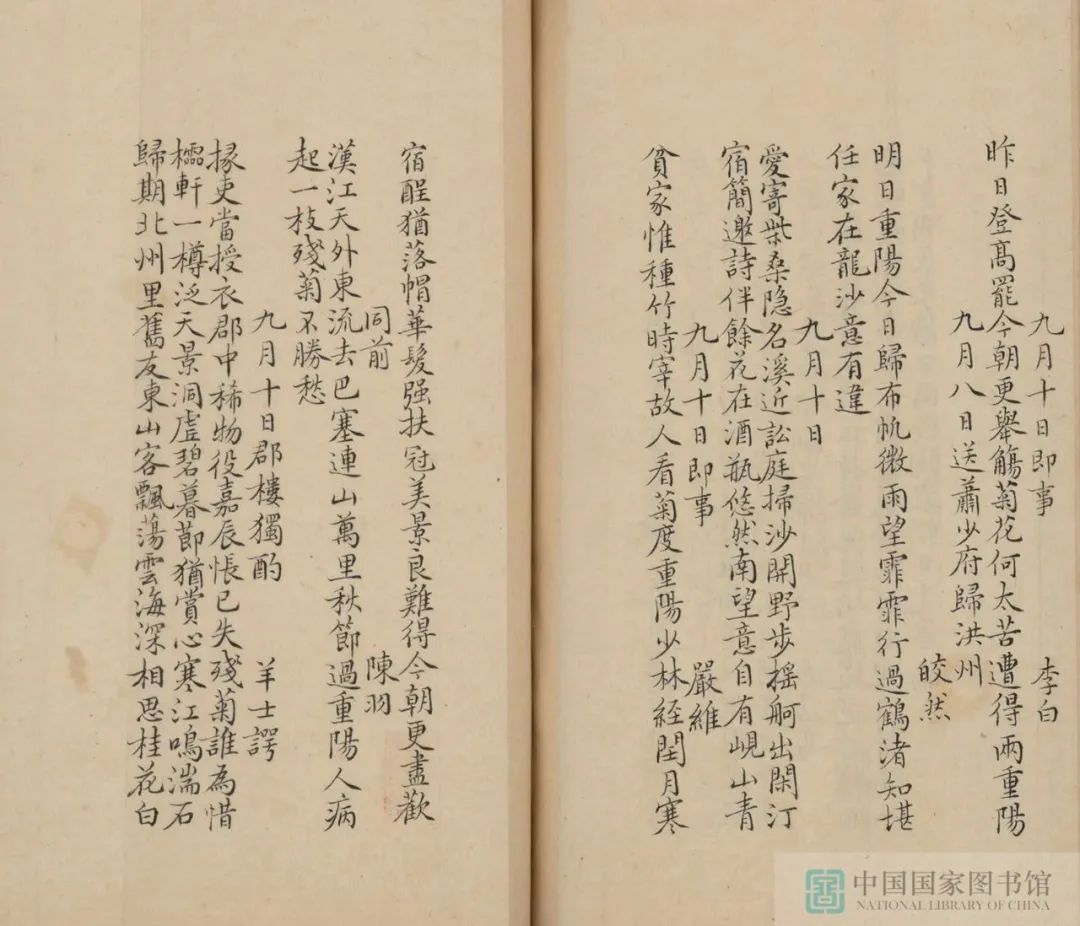 九月十日即事 李白
昨日登髙罷今朝更舉觴菊花何太苦遭得兩重陽
九月八日送蕭少府歸洪州 皎然
明日重陽今日歸布帆微雨望霏霏行過鶴渚知堪
任家在龍沙意有違
九月十日
愛寄柴桑隐名溪近訟庭掃沙開野步揺舸出閑汀
宿簡邀詩伴餘花在酒瓶悠然南望意自有峴山青
九月十日即事 嚴維
貧家惟種竹時宰故人看菊度重陽少林經閏月寒
宿酲猶落帽華髮强扶冠美景良難得今朝更盡歡
同前 陳羽
漢江天外東流去巴塞連山萬里秋節過重陽人病
起一枝殘菊不勝愁
九月十日郡樓獨酌 羊士諤
掾吏當授衣郡中稀物役嘉辰悵已失殘菊誰為惜
櫺軒一樽泛天景洞虚碧暮節猶賞心寒江鳴湍石
歸期北州里舊友東山客飄蕩雲海深相思桂花白
中国国家图书馆
NATIONAL LIBRARY OF CHINA